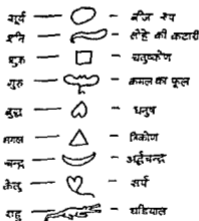 सूर्य — — बीज रूप
शनि — — लोहे की कटारी
शुक्र — — चतुष्कोण
गुरु — — कमल का फूल
बुध — — धनुष
मंगल — — त्रिकोण
चन्द्र — — अर्द्धचन्द्र
केतु — — सर्प
राहु — — घडियाल